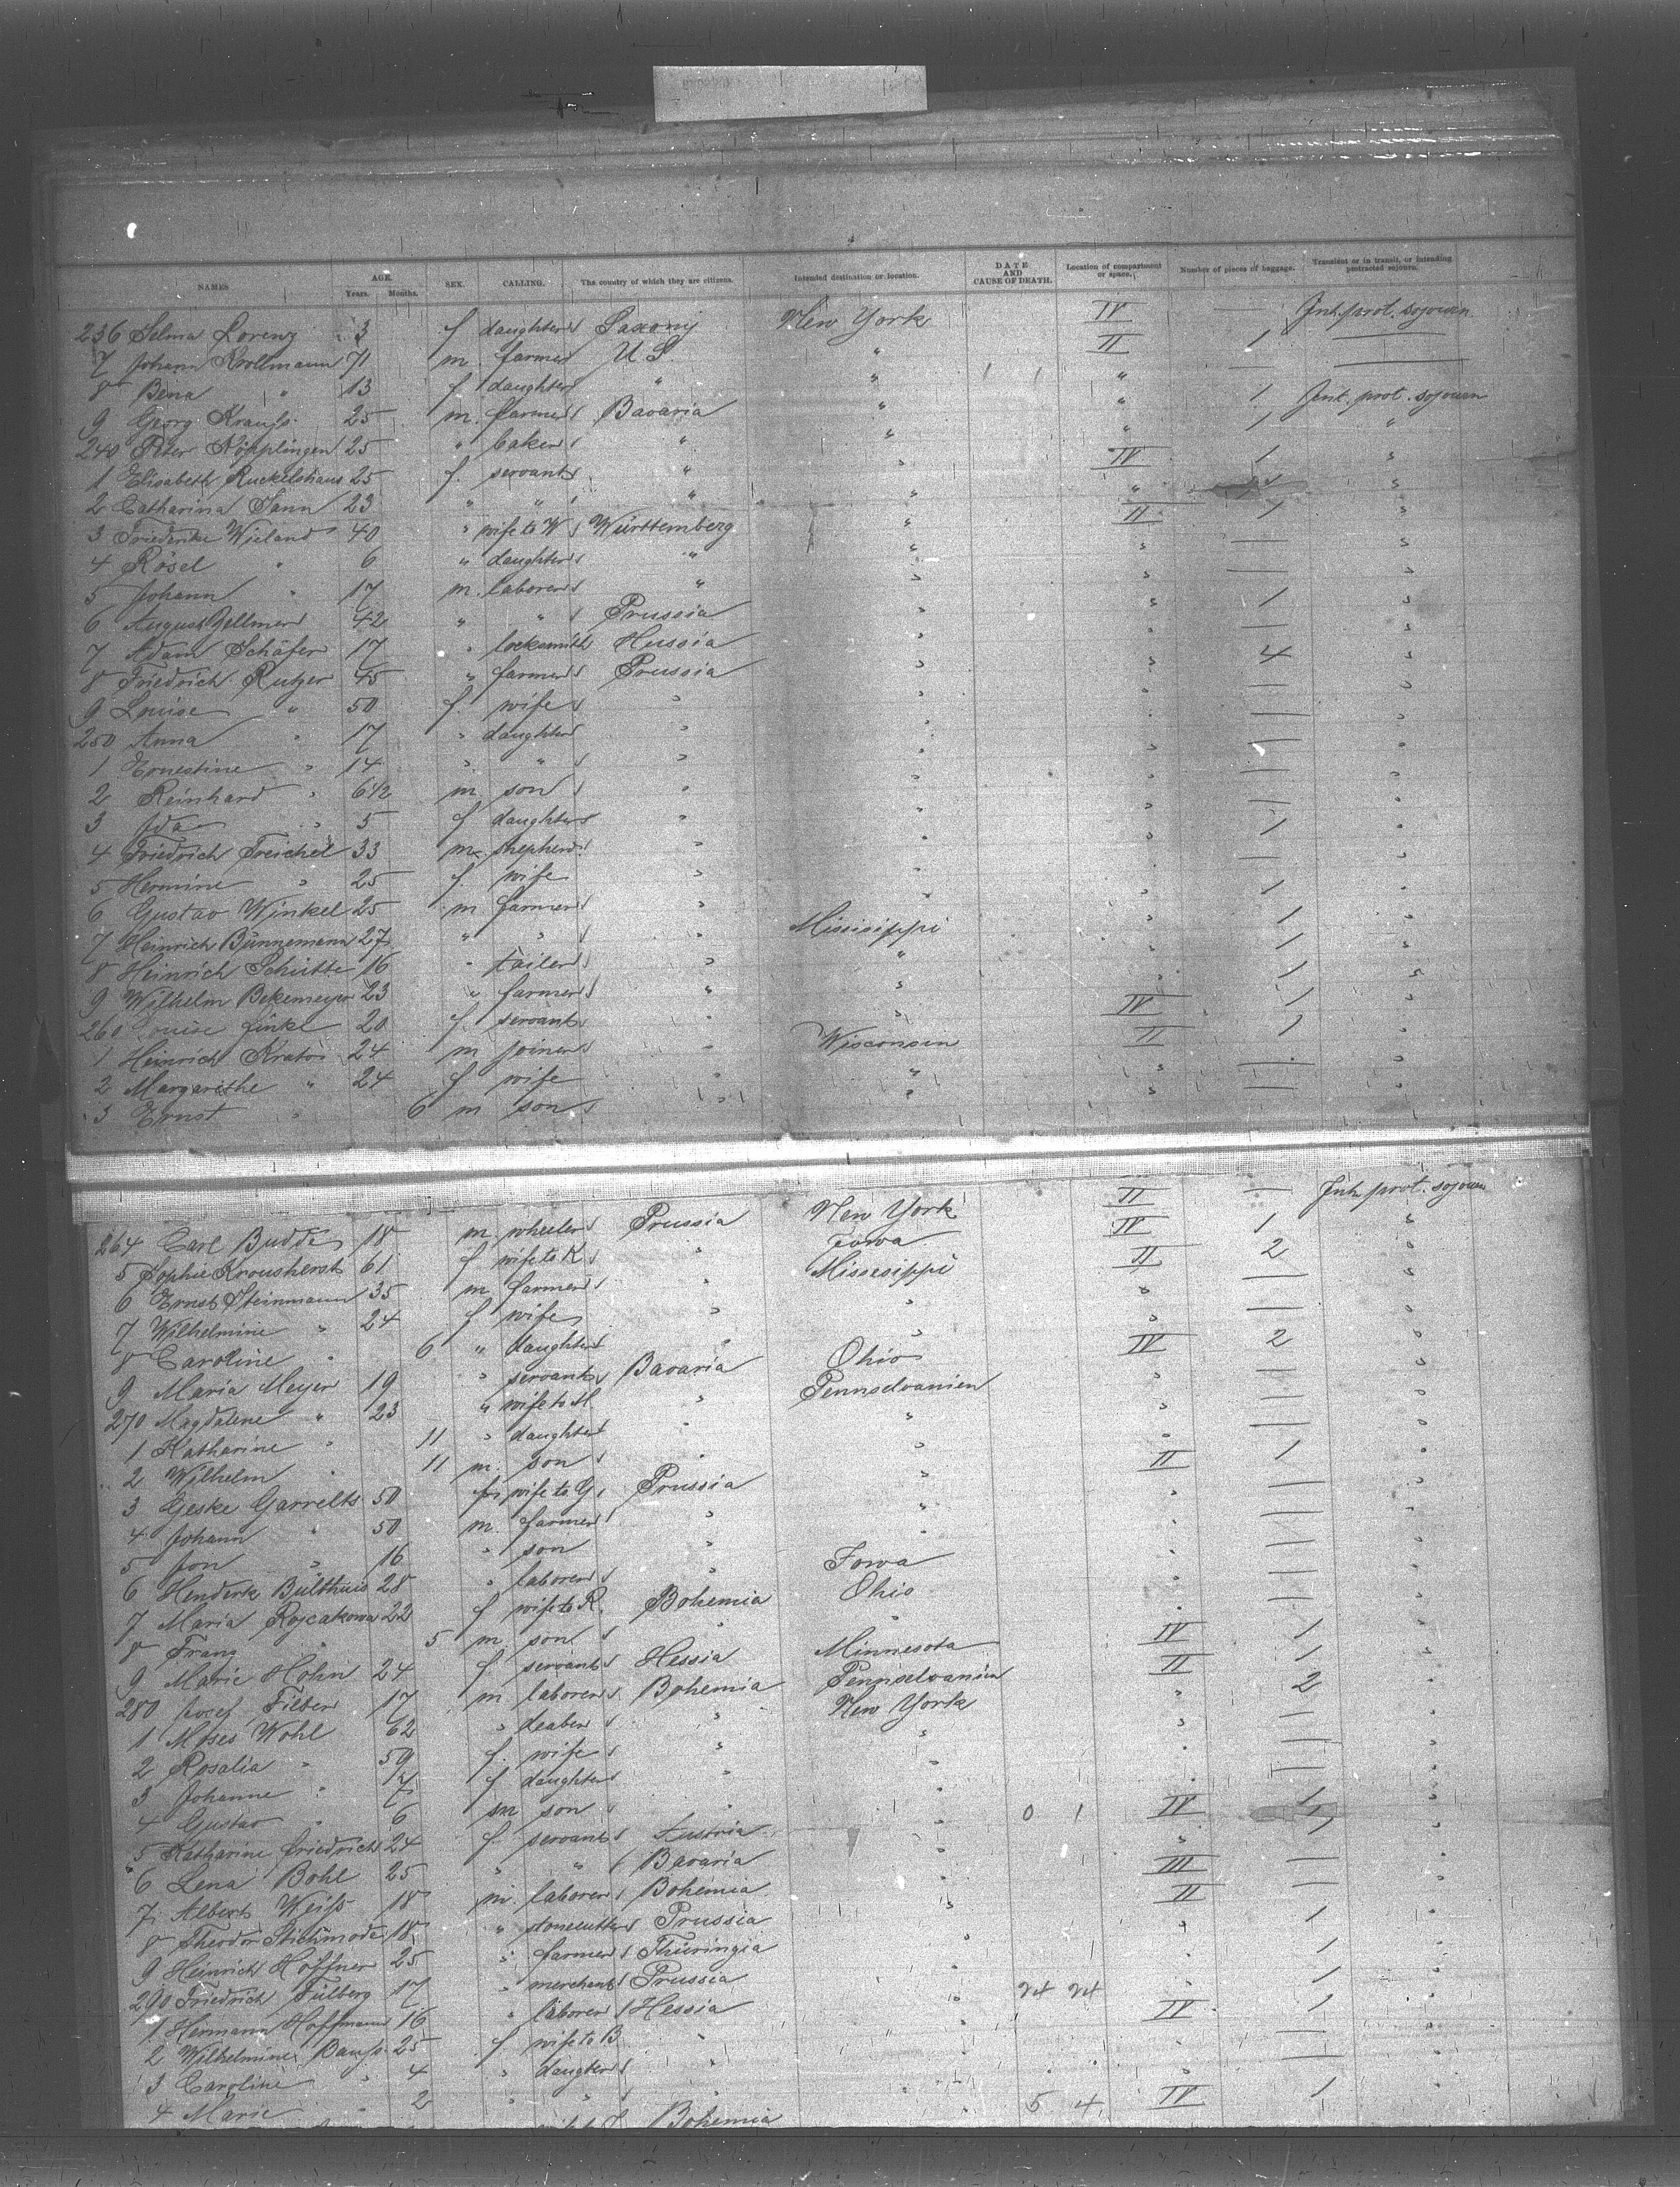 NAMES AGE. Years. Months. SEX. CALLING. The country of which they are citizens. Intended destination or location. DATE AND CAUSE OF DEATH. Location of compartment or space. Number of pieces of baggage. Transient or in transit, or intending protracted sojourn.
236 Selma Lorenz 3 f daughter Saxony New York IV — Int. prot. sojourn
7 Johann Krollmann 71 m. farmer U S. " II 1 —
8 Bena " 13 f daughter " " " —
9 Georg Krauss 25 m. farmer Bavaria " " 1 Int. prot. sojourn
240 Peter Nöpplingen 25 " baker " " " 1 "
1 Elisabeth Ruckelshaus 25 f. servant " " IV 1 "
2 Catharina Sann 23 " " " " " "
3 Friederike Wieland 40 " wife to W Württemberg " II 1 "
4 Rösel " 6 " daughter " " " — "
5 Johann " 17 m. laborer " " " — "
6 August Zellmer 42 " " Prussia " " 1 "
7 Adam Schäfer 17 " locksmith Hessia " " 1 "
8 Friedrich Rutzer 45 " farmer Prussia " " 4 "
9 Louise " 50 f. wife " " " — "
250 Anna " 17 " daughter " " " — "
1 Ernestine " 14 " " " " " — "
2 Reinhard " 6 1/2 m son " " " — "
3 Ida " 5 f daughter " " " — "
4 Friedrich Treichel 33 m. shepherd " " " 1 "
5 Hermine " 25 f. wife " " " — "
6 Gustav Winkel 25 m farmer " " " 1 "
7 Heinrich Bünnemann 27 " " " Missisippi " 1 "
8 Heinrich Schütte 16 " tailer " " " 1 "
9 Wilhelm Bekemeyer 23 " farmer " " " 1 "
260 Louise Finke 20 f. servant " " IV 1 "
1 Heinrich Kratos 24 m joiner " Wisconsin II 1 "
2 Margarethe " 24 f wife " " " — "
3 Ernst " 6 m son " " " — "
264 Carl Budde 18 m. wheeler Prussia New York II — Int. prot. sojourn
5 Sophie Kroushorst 61 f wife to K " Iowa IV 1 "
6 Ernst Steinmann 35 m farmer " Missisippi II 2 "
7 Wilhelmine " 24 f wife " " " — "
8 Caroline " 6 " daughter " " " — "
9 Maria Meyer 19 " servant Bavaria Ohio IV 2 "
270 Magdalene " 23 " wife to M " Pennselvanien " — "
1 Katharine " 11 " daughter " " " — "
2 Wilhelm " 11 m. son " " " — "
3 Geske Garrelts 50 f wife to G Prussia " II 1 "
4 Johann " 50 m. farmer " " " — "
5 Jon " 16 " son " " " — "
6 Henderk Bülthuis 28 " laborer " Iowa " — "
7 Maria 22 f wife to R. Bohemia Ohio " — "
8 Franz " 5 m son " " " — "
9 Marie Hohn 24 f servant Hessia Minnesota IV 1 "
280 Josef Filber 17 m laborer Bohemia Pennselvanien II 1 "
1 Moses Wohl 62 " dealer " New York " 2 "
2 Rosalia " 59 f. wife " " " — "
3 Johanne " 7 f daughter " " " — "
4 Gustav " 6 m son " " " — "
5 Katharine Friedrich 24 f. servant Austria " 0 1 IV 1 "
6 Lena Bohl 25 " " Bavaria " " 1 "
7 Albert Weiss 18 m. laborer Bohemia " III — "
8 Theodor 18 " stonecutter Prussia " II — "
9 Heinrich Höffner 25 " farmer Thüringia " " 1 "
290 Friedrich Fülberg 17 " merchant Prussia " " 1 "
1 Hermann Hoffmann 16 " laborer Hessia " 24 24 " 1 "
2 Wilhelmine 25 f wife to B. " " IV 1 "
3 Caroline " 4 " daughter " " " — "
4 Marie " 2 " " " " " — "
Bohemia 5 4 IV 1 "